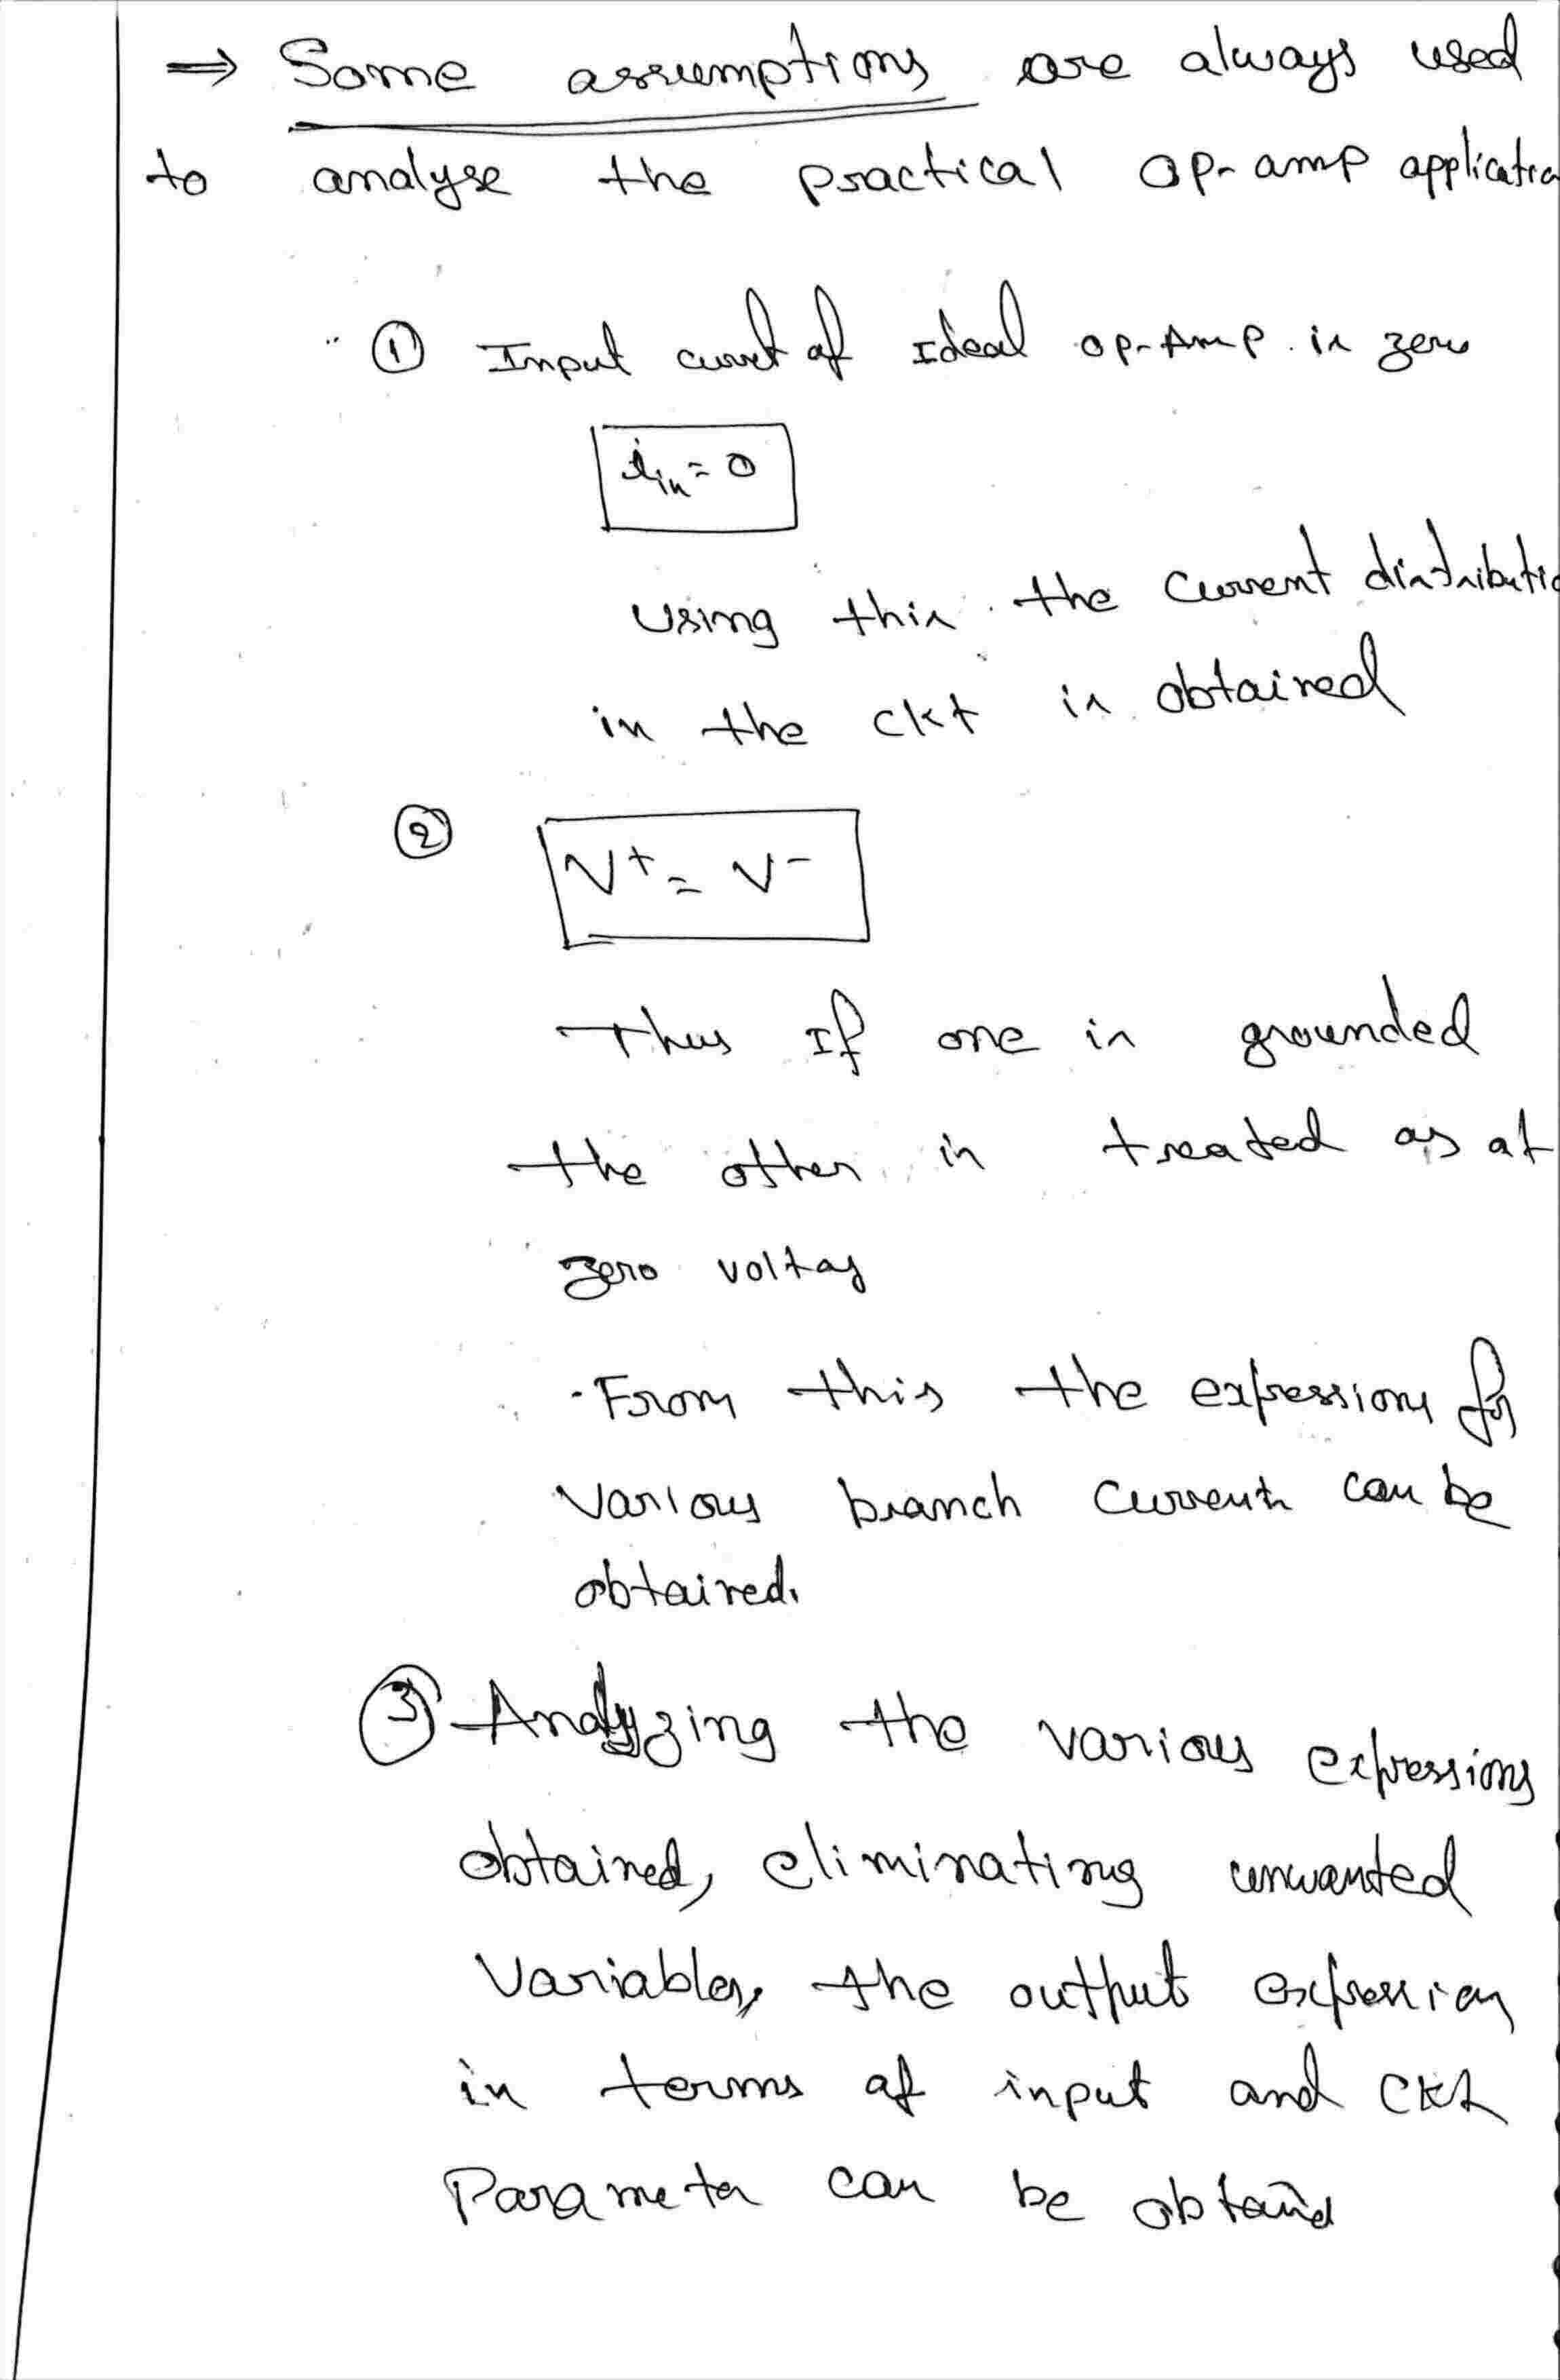 ⇒ Some assumptions are always used
to analyse the practical op-amp applicatio
① Input curret of Ideal op-Amp is zero
iin = 0
using this the current distributio
in the ckt is obtained
② V+ = V-
Thus If one is grounded
the other is treated as at
zero voltag
- From this the expressions for
various branch currents can be
obtained.
③ Analyzing the various expressions
obtained, eliminating unwanted
variables, the output expression
in terms of input and ckt
Parameter can be obtaind